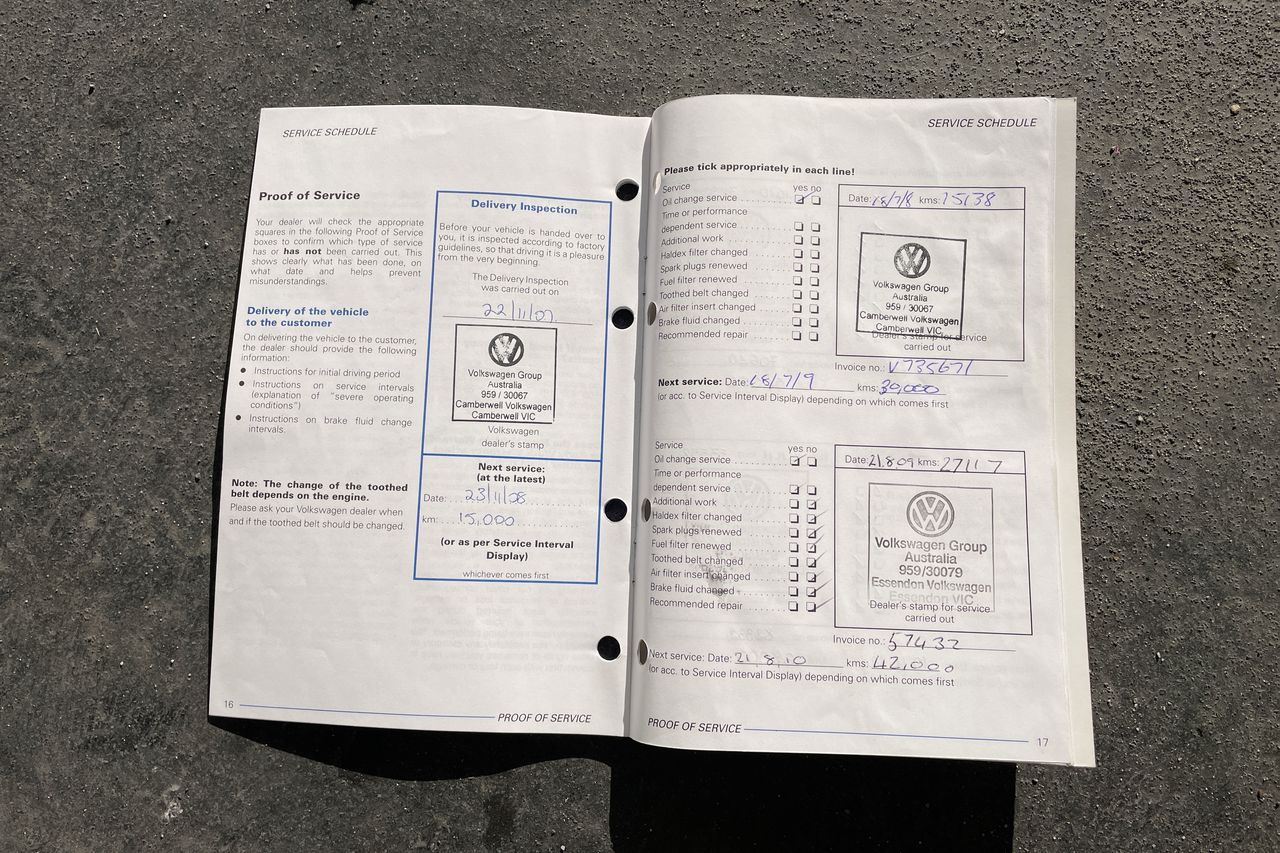 SERVICE SCHEDULE
Proof of Service
Your dealer will check the appropriate
squares in the following Proof of Service
boxes to confirm which type of service
has or has not been carried out. This
shows clearly what has been done, on
what date and helps prevent
misunderstandings.
Delivery of the vehicle
to the customer
On delivering the vehicle to the customer,
the dealer should provide the following
information:
● Instructions for initial driving period
● Instructions on service intervals
(explanation of "severe operating
conditions")
● Instructions on brake fluid change
intervals.
Note: The change of the toothed
belt depends on the engine.
Please ask your Volkswagen dealer when
and if the toothed belt should be changed.
Delivery Inspection
Before your vehicle is handed over to
you, it is inspected according to factory
guidelines, so that driving it is a pleasure
from the very beginning.
The Delivery Inspection
was carried out on
22/11/07
Volkswagen Group
Australia
959 / 30067
Camberwell Volkswagen
Camberwell VIC
Volkswagen
dealer's stamp
Next service:
(at the latest)
Date: 23/11/08
km: 15,000
(or as per Service Interval
Display)
whichever comes first
16
PROOF OF SERVICE
SERVICE SCHEDULE
Please tick appropriately in each line!
Service yes no
Oil change service
Time or performance
dependent service
Additional work
Haldex filter changed
Spark plugs renewed
Fuel filter renewed
Toothed belt changed
Air filter insert changed
Brake fluid changed
Recommended repair
Date: 18/7/8 kms: 15138
Volkswagen Group
Australia
959 / 30067
Camberwell Volkswagen
Camberwell VIC
Dealer's stamp for service
carried out
Invoice no.: V735671
Next service: Date: 18/7/9 kms: 30,000
(or acc. to Service Interval Display) depending on which comes first
Service yes no
Oil change service
Time or performance
dependent service
Additional work
Haldex filter changed
Spark plugs renewed
Fuel filter renewed
Toothed belt changed
Air filter insert changed
Brake fluid changed
Recommended repair
Date: 21.8.09 kms: 27117
Volkswagen Group
Australia
959/30079
Essendon Volkswagen
Essendon VIC
Dealer's stamp for service
carried out
Invoice no.: 57432
Next service: Date: 21.8.10 kms: 42,000
(or acc. to Service Interval Display) depending on which comes first
PROOF OF SERVICE
17